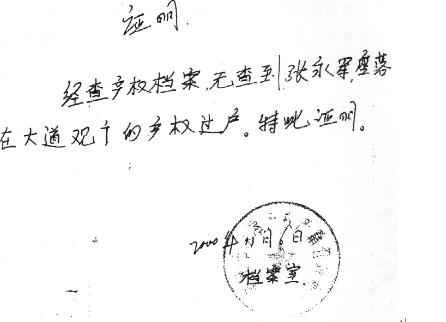 证明
经查产权档案,无查到张永军座落
在大道观1的产权过户。特此证明。
2000年11月6日
档案室